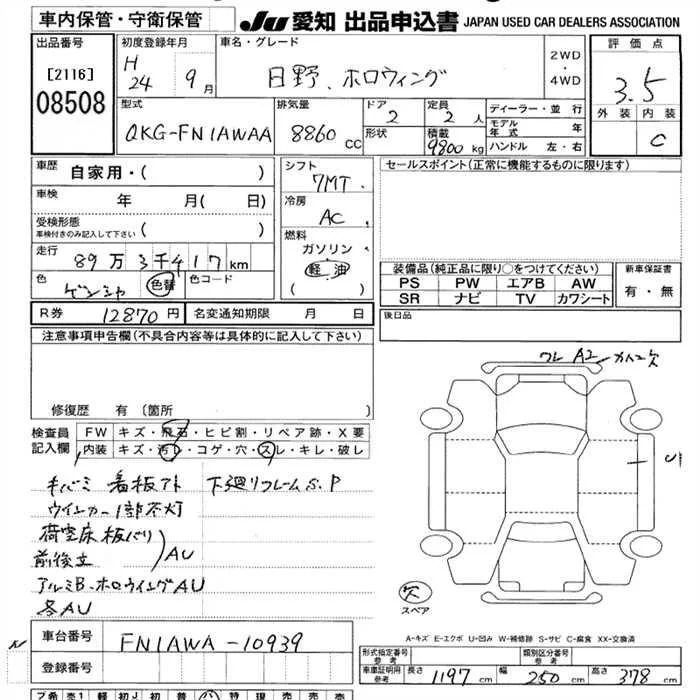 車内保管・守衛保管
JU 愛知 出品申込書 JAPAN USED CAR DEALERS ASSOCIATION
出品番号 初度登録年月 車名・グレード 2WD・4WD 評価点
[2116] H 24 9月 日野、ホロウィング 3.5
08508
型式 排気量 ドア 定員 ディーラー・並行 外装 内装
QKG-FN1AWAA 8860cc 2 2人 モデル年式 年
形状 積載 9800kg ハンドル 左・右 C
車歴 自家用・( ) シフト 7MT. セールスポイント(正常に機能するものに限ります)
車検 年 月( 日) 冷房 AC
受検形態
車検付きのみ記入して下さい ( ) 燃料
走行 89万3千417km ガソリン
軽油
( )
色 ゲンシャ 色替 色コード
装備品(純正品に限り○をつけてください) 新車保証書
PS PW エアB AW 有・無
SR ナビ TV カワシート
R券 12870円 名変通知期限 月 日 後日品
注意事項申告欄(不具合内容等は具体的に記入して下さい)
ワレ A2 カケ欠
修復歴 有〔箇所 〕
検査員記入欄 FW キズ・飛石・ヒビ割・リペア跡・X要
内装 キズ・汚レ・コゲ・穴・スレ・キレ・破レ
キバミ 看板アト 下廻リフレームS.P
ウインカー1部不灯
荷室床板バリ
前後立 AU
アルミB.ホロウイングAU
各AU
欠
スペア
A-キズ E-エクボ U-凹み W-補修跡 S-サビ C-腐食 XX-交換済
車台番号 FN1AWA-10939
登録番号
形式指定番号 参考 類別区分番号 参考
車庫証明用 参考 長さ 1197cm 幅 250cm 高さ 378cm